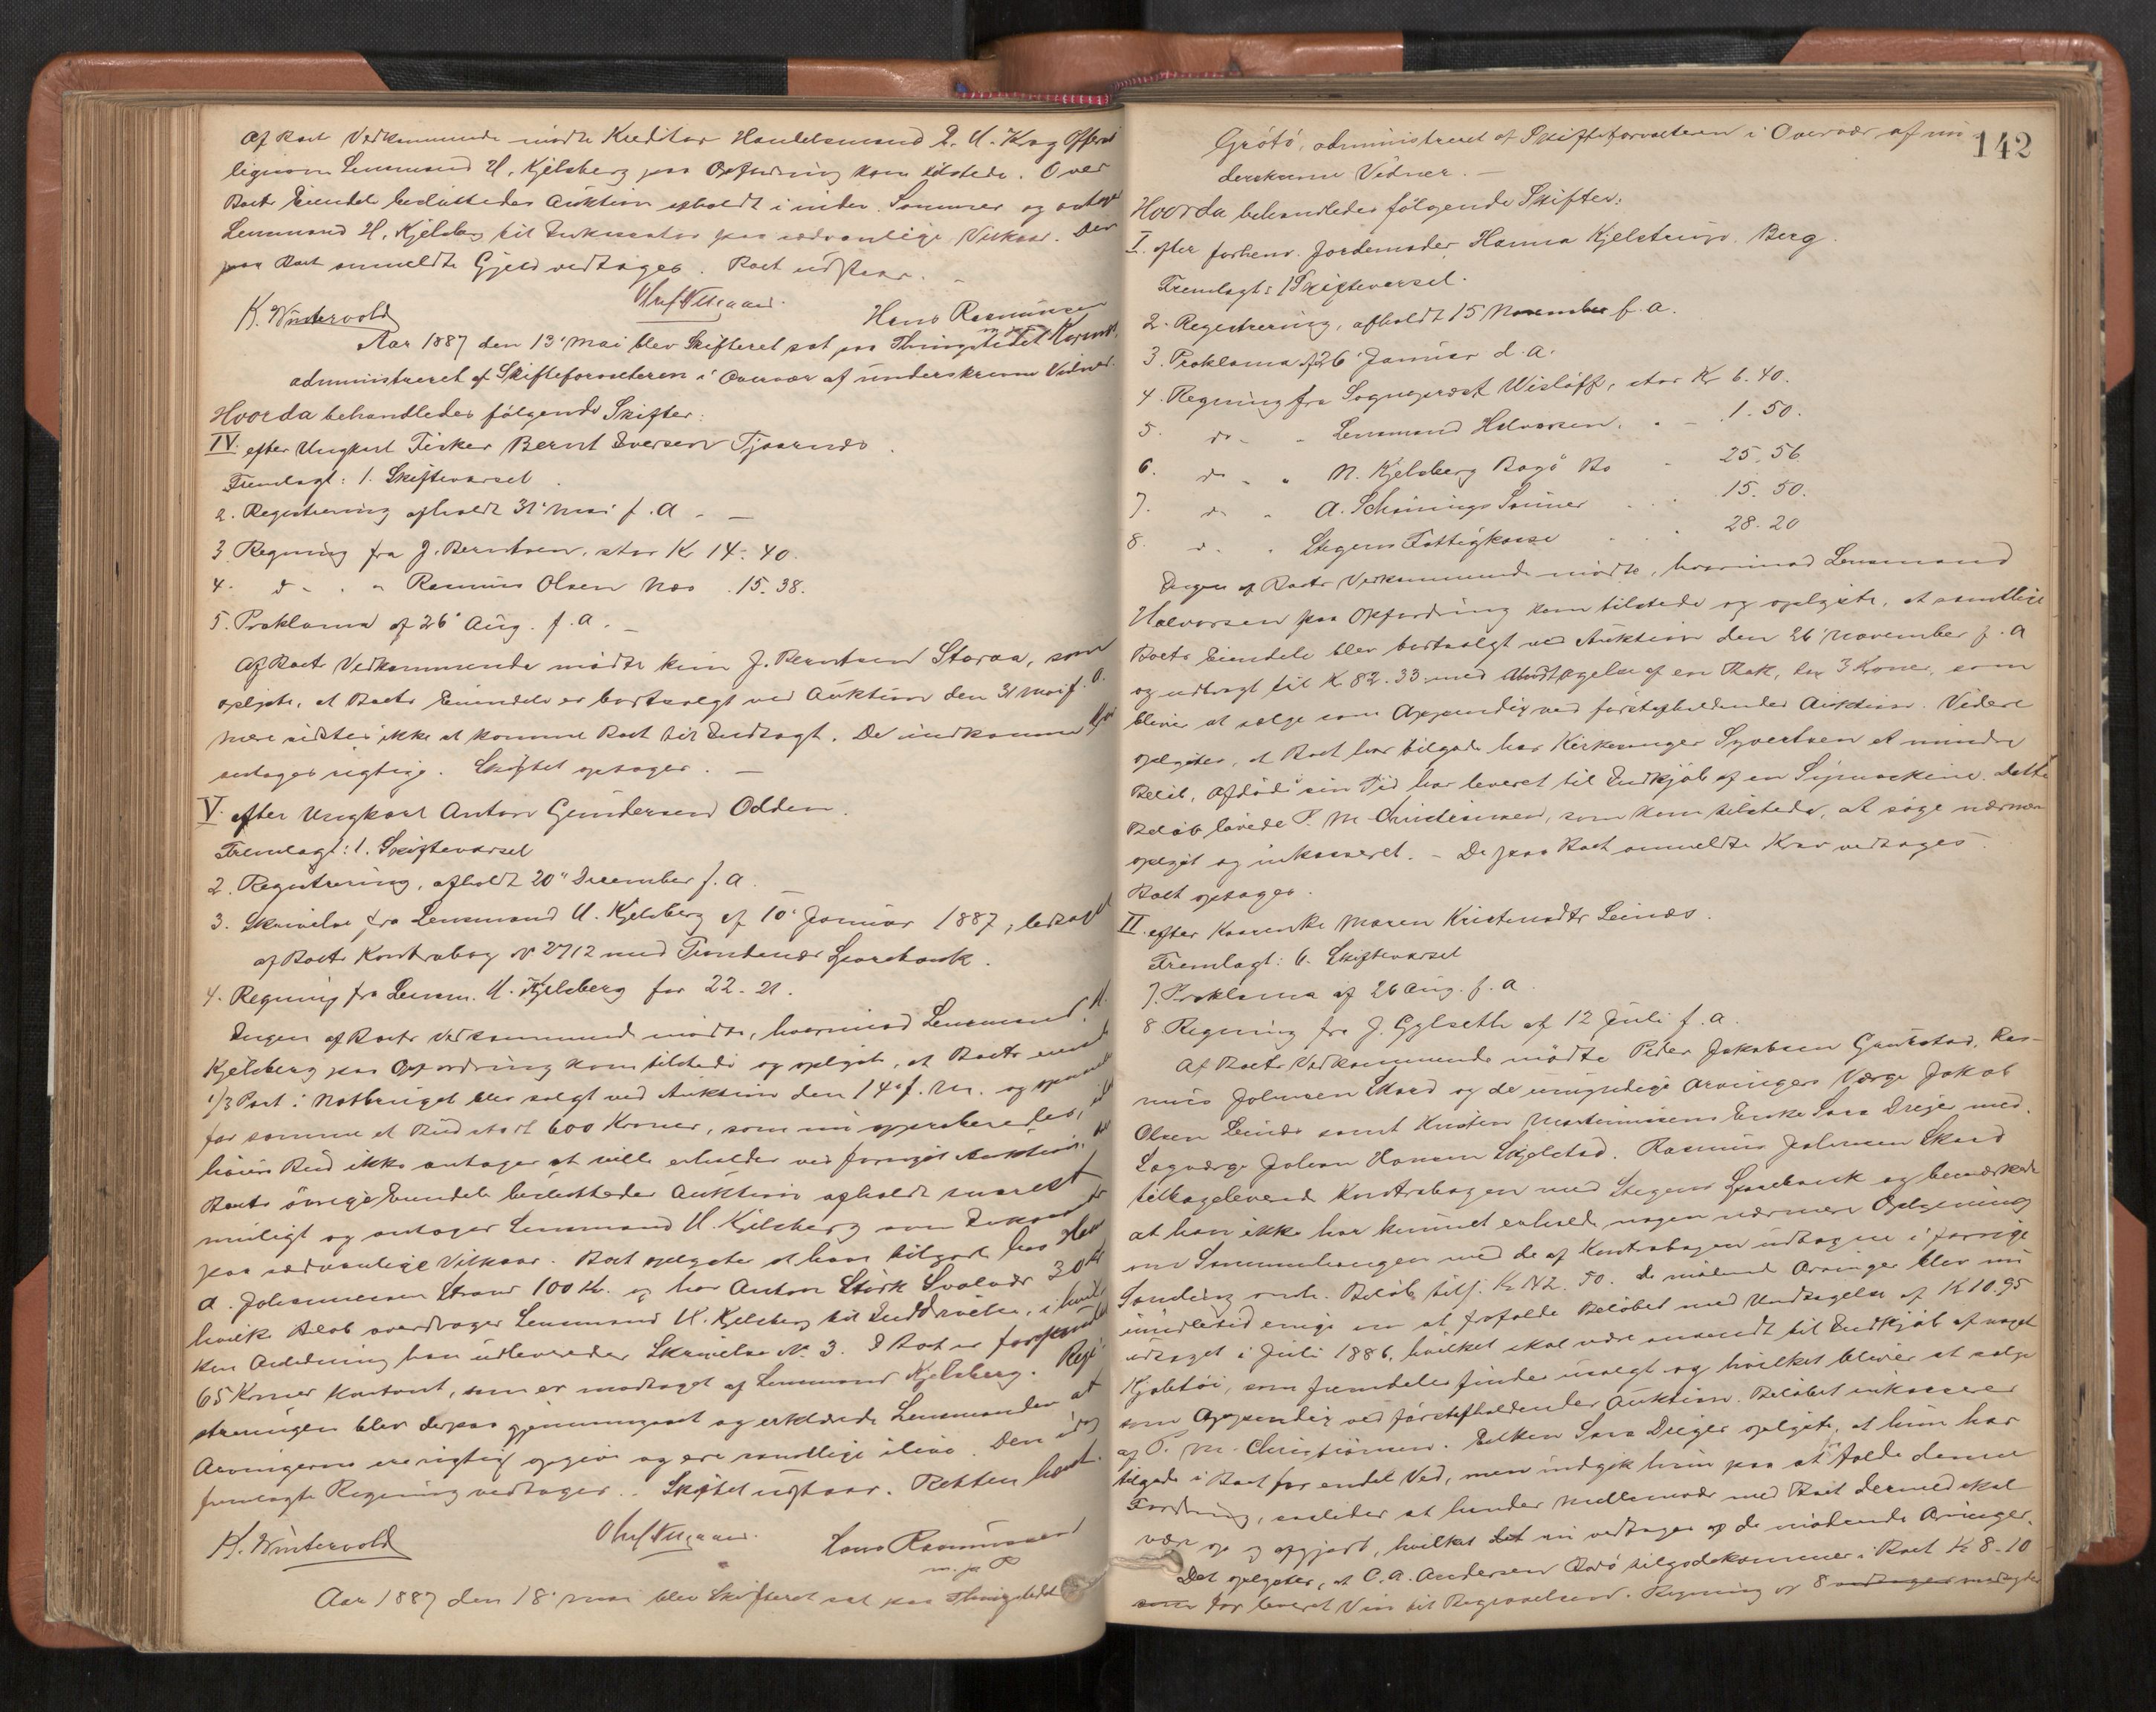 Af Boet Vedkommende mødte Kreditor Handelsmand
ligesom Lensmand H. Kjelsberg paa Opfordring kom tilstede. Over
Boets Eiendele besluttedes Auktion afholdt i inder. Sommer og antoges
Lensmand H. Kjelsberg til Inkassator paa sædvanlige Vilkaar. Den
paa Boet anmeldte Gjeld vedtoges. Boet udstaar.
K. Wintervold Hans Rasmussen
Aar 1887 den 13' Mai blev Skifteret sat paa Thingstedet
administreret af Skifteforvalteren i Overvær af underskrevne Vidner.
Hvorda behandledes følgende Skifter:
IV. efter Ungkarl Fisker Bernt Iversen Tjaarnæs.
Fremlagt: 1. Skiftevarsel
2. Registrering afholdt 31' Mai f. A. —
3 Regning fra J. Berntsen, stor Kr 14. 40.
4. d - . " Rasmus Olsen Næs . 15. 38.
5. Proklama af 26' Aug. f. a. —
Af Boets Vedkommende mødte kun J. Berntsen Storaa, som
oplyste, at Boets Eiendele er bortsolgt ved Auktion den 31 Mai f. A.
Mere vidstes ikke at komme Boet til Indtægt. De indkomne
antages rigtige. Skiftet optages. —
V. efter Ungkarl Anton Gundersen Odden.
Fremlagt: 1. Skiftevarsel
2. Registrering, afholdt 20' December f. A.
3. Skrivelse fra Lensmand H. Kjelsberg af 10' Januar 1887, ledsaget
af Boets Kontrabog No 2712 med Trondenæs Sparebank.
4. Regning fra Lensm. H. Kjelsberg for 22. 21.
Ingen af Boets Vedkommende mødte, hvorimod Lensmand H.
Kjelsberg paa Opfordring kom tilstede og oplyste, at Boets
1/3 Part i Notbruget blev solgt ved Auktion den 14' f. M. og
for samme et Bud stort 600 Kroner, som nu approberedes,
høiere Bud ikke antages at ville erholdes ved fornyet Auktion.
Boets øvrige Eiendele besluttedes Auktion afholdt snarest
muligt og antages Lensmand H. Kjelsberg som
paa sædvanlige Vilkaar. Boet oplystes at have tilgode hos
A. Johannesen Strand 100 Kr. og hos Anton Stork Svolvær 30 Kr
hvilke Beløb overdrages Lensmand H. Kjelsberg til Inddrivelse, i hvil-
ken Anledning han udleveredes Skrivelse No. 3. I Boet er forefundet
65 Kroner kontant, som er modtaget af Lensmand Kjelsberg. Regi-
streringen blev derpaa gjennemgaaet og erklærede Lensmanden at
Arvingerne ere rigtig opgivne og ere samtlige ilive. Den idag
fremlagte Regning vedtages. - Skiftet udstaar. Retten hævet.
K. Wintervold Hans Rasmussen
m. p. P.
Aar 1887 den 18' Mai blev Skifteret sat paa Thingstedet
142
Grøtø, administreret af Skifteforvalteren i Overvær af un-
derskrevne Vidner. —
Hvorda behandledes følgende Skifter:
I. efter forhenv. Jordemoder Hanna Kjelstrup. Berg.
Fremlagt: 1 Skiftevarsel.
2. Registrering, afholdt 15 November f. a.
3. Proklama af 26' Januar d. a.
4. Regning fra Sognepræst Wisløff, stor Kr 6. 40.
5. do - " Lensmand Halvorsen. " - 1. 50.
6. do - " N. Kjelsberg Bogø Bo - 25. 56.
7. d- " A. Schønings Sønner . . 15. 50.
8. d. " Stegens Fattigkasse . . 28. 20
Ingen af Boets Vedkommende mødte, hvorimod Lensmand
Halvorsen paa Opfordring kom tilstede og oplyste, at samtlige
Boets Eiendele blev bortsolgt ved Auktion den 26' November f. A
og udbragt til Kr 82. 33 med Undtagelse af en Thak, tax 3 Kroner, som
bliver at sælge som Appendix ved førstafholdendes Auktion. Videre
oplystes, at Boet har tilgode hos Kirkesanger Syvertsen et mindre
Beløb, Afdøde i sin Tid har leveret til Indkjøb af en Symaskine. Dette
Beløb lovede P. M. Christiansen, som kom tilstede, at søge nærmere
oplyst og inkasseret. - De paa Boet anmeldte Krav vedtages.
Boet optages.
II. efter Maren Kristensdtr Leinæs.
Fremlagt: 6. Skiftevarsel
7. Proklama af 26 Aug. f. a.
8 Regning fra J. Gylseth af 12 Juli f. a.
Af Boets Vedkommende mødte Peder Jakobsen Ras-
mus Johnsen Skard og de umyndige Arvingers Værge Jakob
Olsen Leinæs samt Kristen Martinussens Enke Sara Dreyer med
Lagværge Johan Hansen Skjelstad. Rasmus Johnsen Skard
tilbageleverede Kontrabogen med Stegens Sparebank og bemærkede
at han ikke har kunnet erholde nogen nærmere Oplysning
om Sammenhængen med de af Kontrabogen udtagne i forrige
Samling omh. Beløb tils. Kr 42. 50. De mødende Arvinger blev nu
imidlertid enige om at frafalde Beløbet med Undtagelse af Kr 10. 95
udtaget i Juli 1886, hvilket skal være anvendt til Indkjøb af noget
Kjoletøi, som fremdeles findes usolgt og hvilket bliver at sælge
som Appendix ved førstafholdendes Auktion. Beløbet inkasseres
af P. M. Christiansen. Enken Sara Dreyer oplyste, at hun har
tilgode i Boet for endel Ved, men indgik hun paa at falde denne
Fordring, saaledes at hendes Mellemvær med Boet dermed skal
være op og opgjort, hvilket det nu vedtages af de mødende Arvinger.
Det oplystes, at C. A. Andersen Bodø tilgodekommer i Boet Kr 8. 10
som for leveret Vin til Begravelsen. Regning No 8